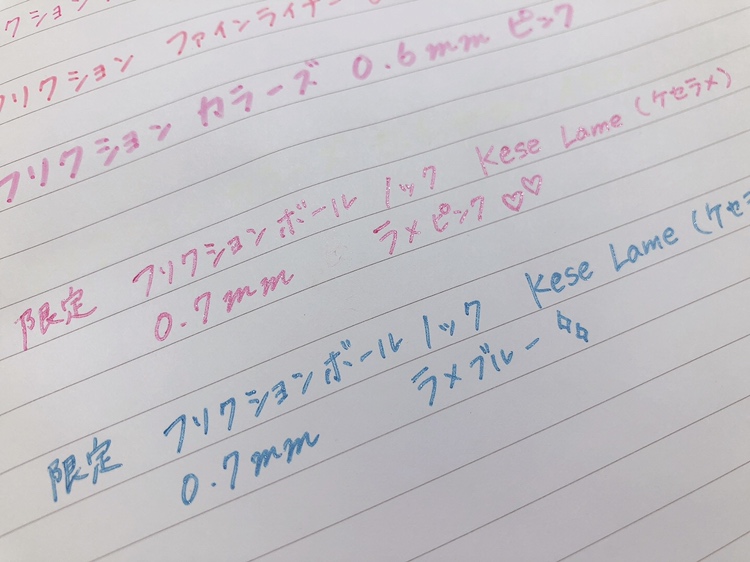 クション
フリクション ファインライナー
フリクション カラーズ 0.6mm ピンク
限定 フリクションボール ノック Kese Lame (ケセラメ)
0.7mm ラメピンク ♡♡
限定 フリクションボール ノック Kese Lame (ケセラ
0.7mm ラメブルー